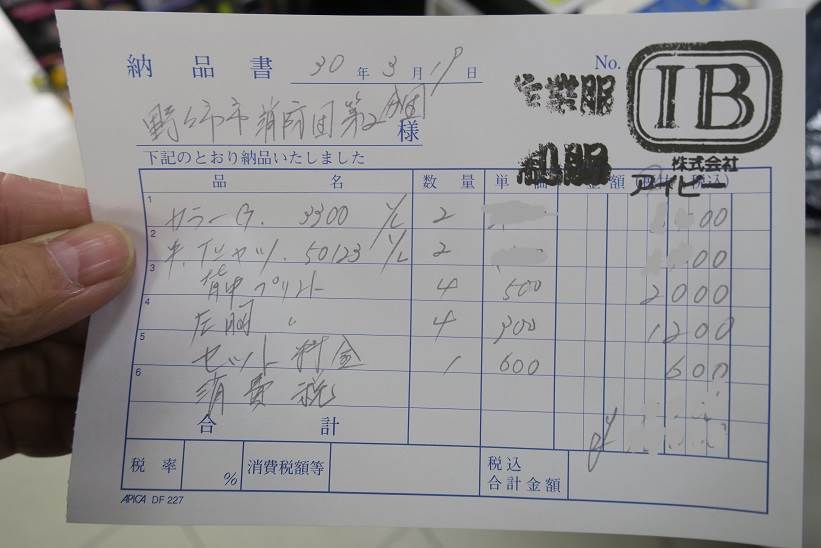 納品書 30年3月19日 No.
作業服 IB
野々市市消防団第2分団 様
制服 株式会社
下記のとおり納品いたしました アイビー
品名 数量 単価 金額(税抜・税込)
1 カラーG. 3300 Y/L 2 00
2 半.Tシャツ. 50123 Y/L 2 00
3 背中プリント 4 500 2000
4 左胸 〃 4 300 1200
5 セット料金 1 600 600
6 消費税
合計
税率 % 消費税額等 税込合計金額
APICA DF 227